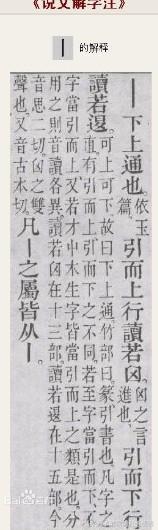 《说文解字注》
丨 的解释
丨下上通也。依玉篇。引而上行讀若囟。囟之言進也。引而下行
讀若𨓤。可上可下故曰下上通竹部曰篆引書也凡字之
直有引而上引而下之不同若至字當引而下不
字當引而上又若才屮木生字皆當引而上之類是也分
用之則音讀各異讀若囟在十三部讀若𨓤在十五部今
音思二切囟之雙
聲也又音古本切。凡丨之屬皆从丨。
百科